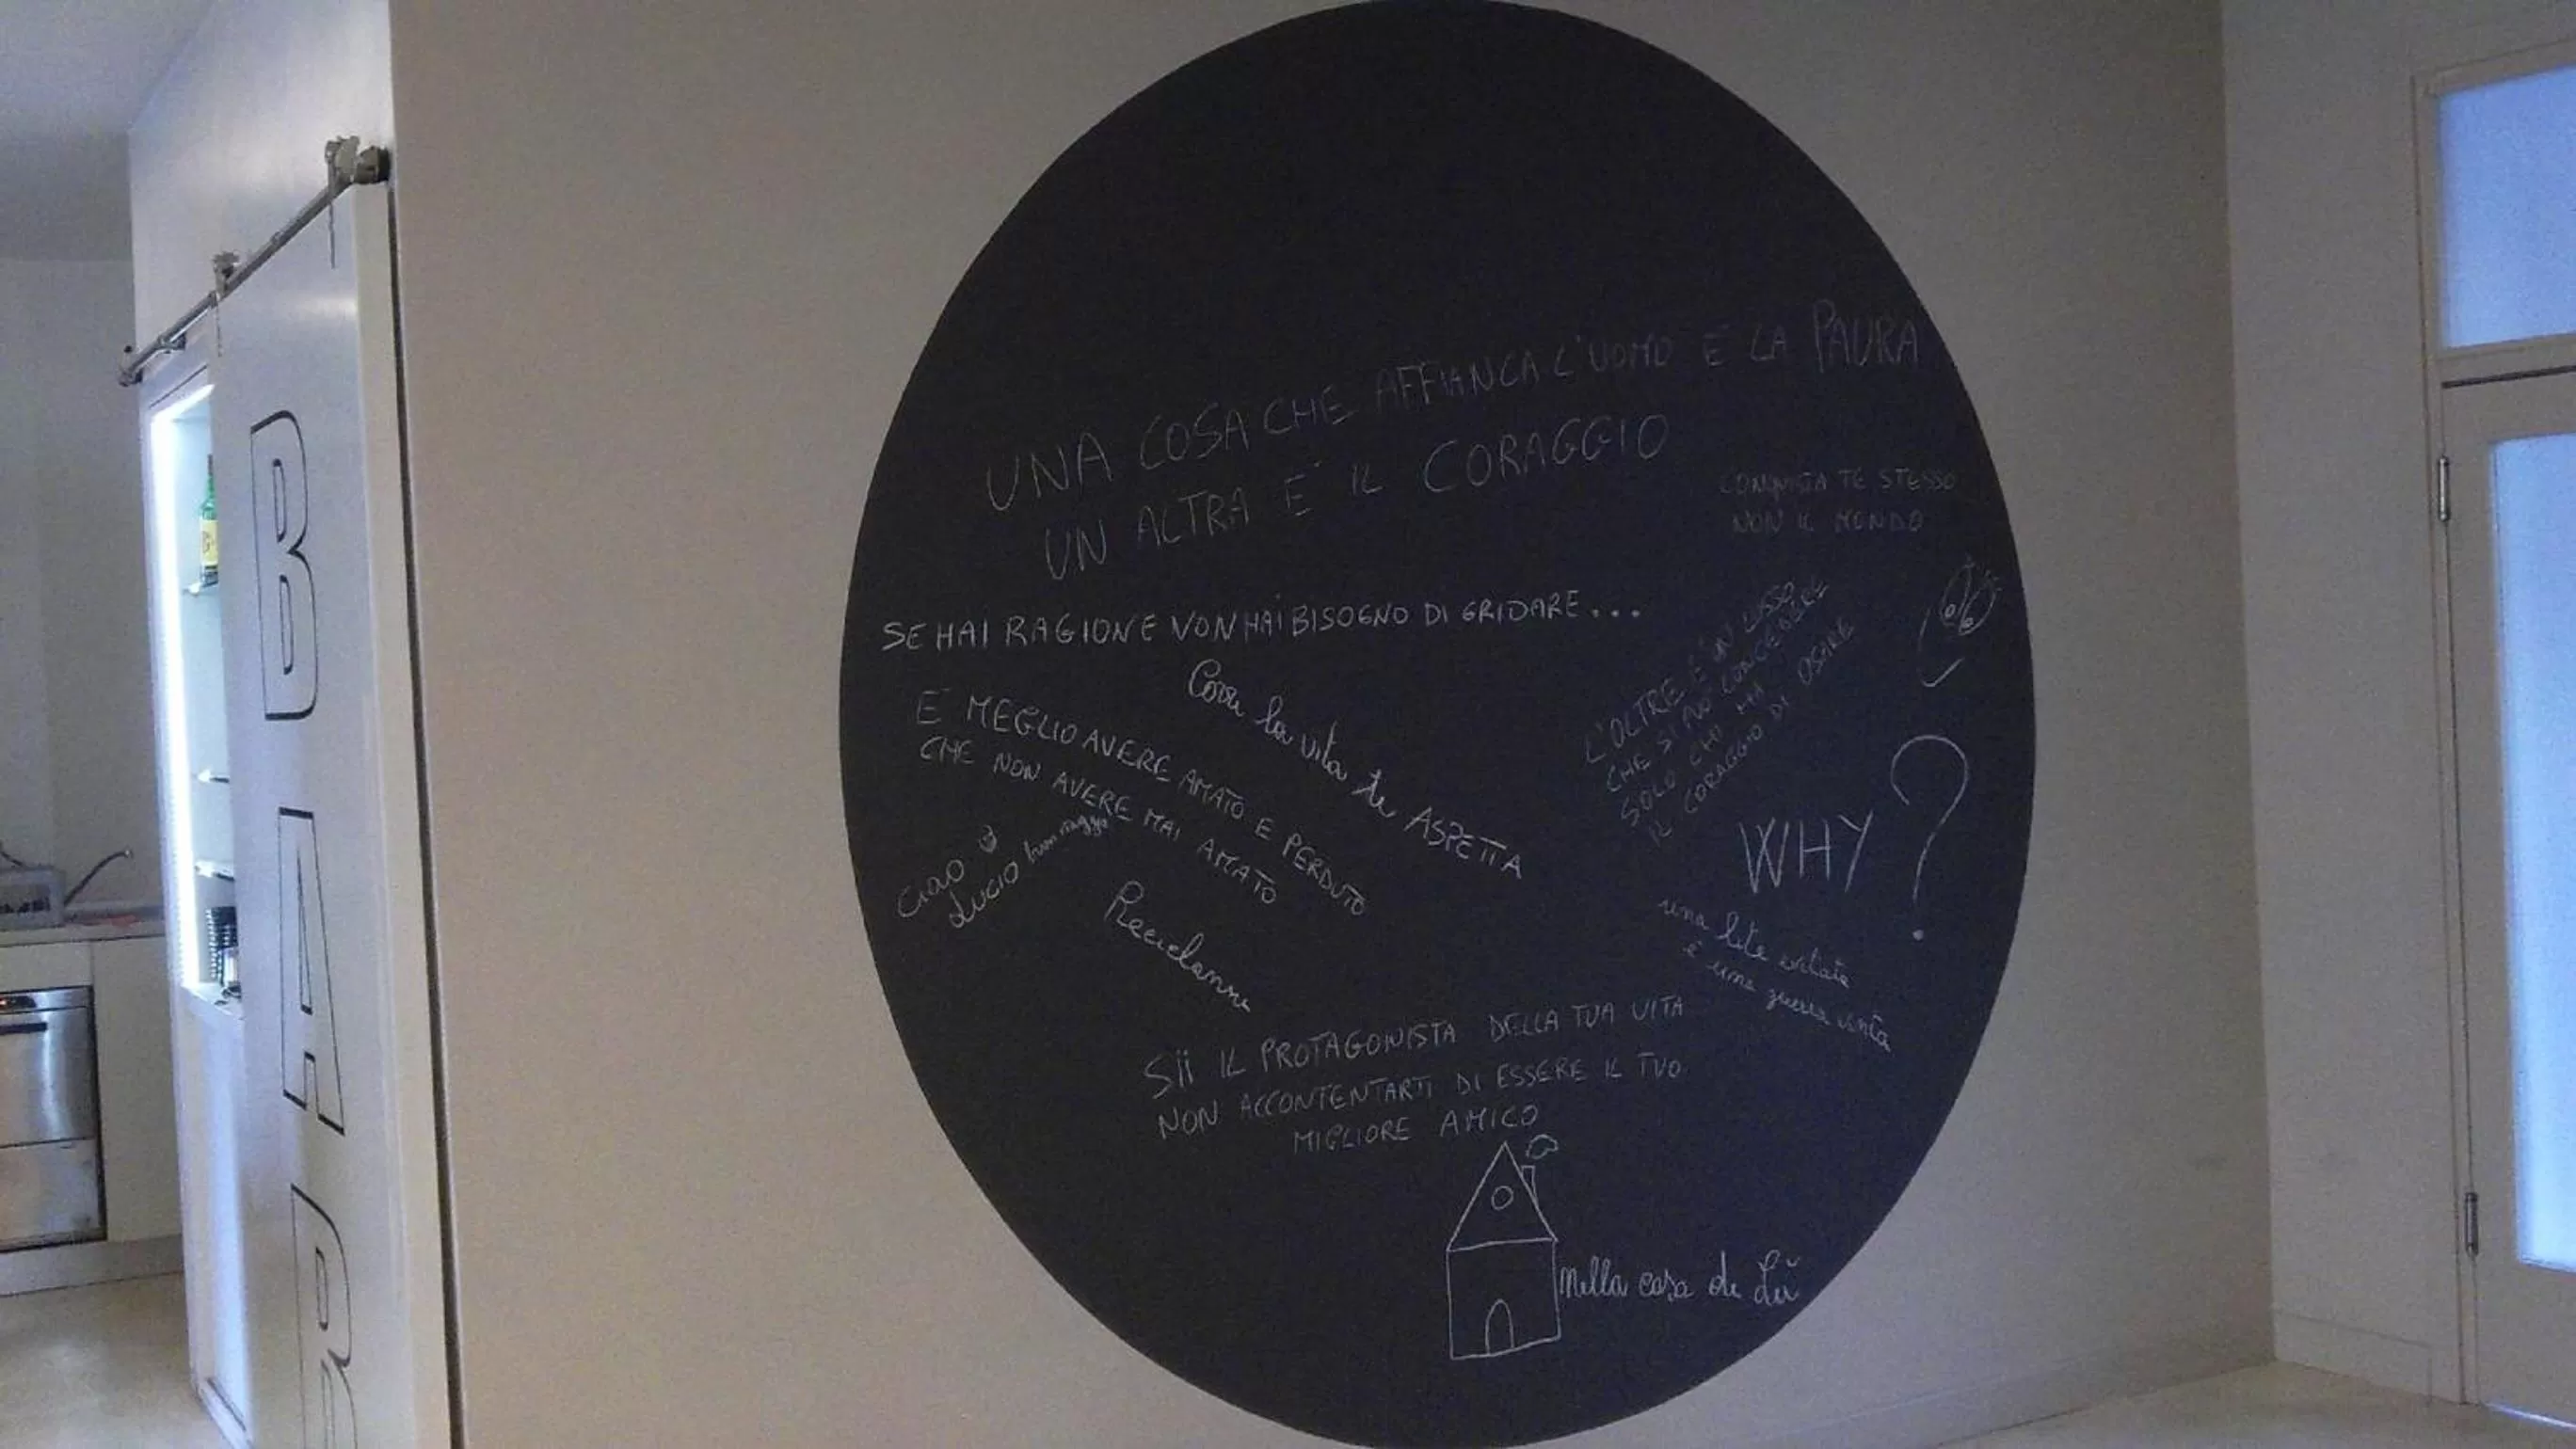 BAR
UNA COSA CHE AFFIANCA L'UOMO E LA PAURA
UN ALTRA E' IL CORAGGIO
CONQUISTA TE STESSO
NON IL MONDO
SE HAI RAGIONE NON HAI BISOGNO DI GRIDARE...
L'OLTRE E' UN LUSSO
CHE SI PUO' CONCEDERE
SOLO CHI HA
IL CORAGGIO DI OSARE
la vita te ASPETTA
E' MEGLIO AVERE AMATO E PERDUTO
CHE NON AVERE MAI AMATO
CIAO
LUCIO
WHY?
una lite evitata
è una guerra vinta
SII IL PROTAGONISTA DELLA TUA VITA
NON ACCONTENTARTI DI ESSERE IL TUO
MIGLIORE AMICO
Nella casa di Lù